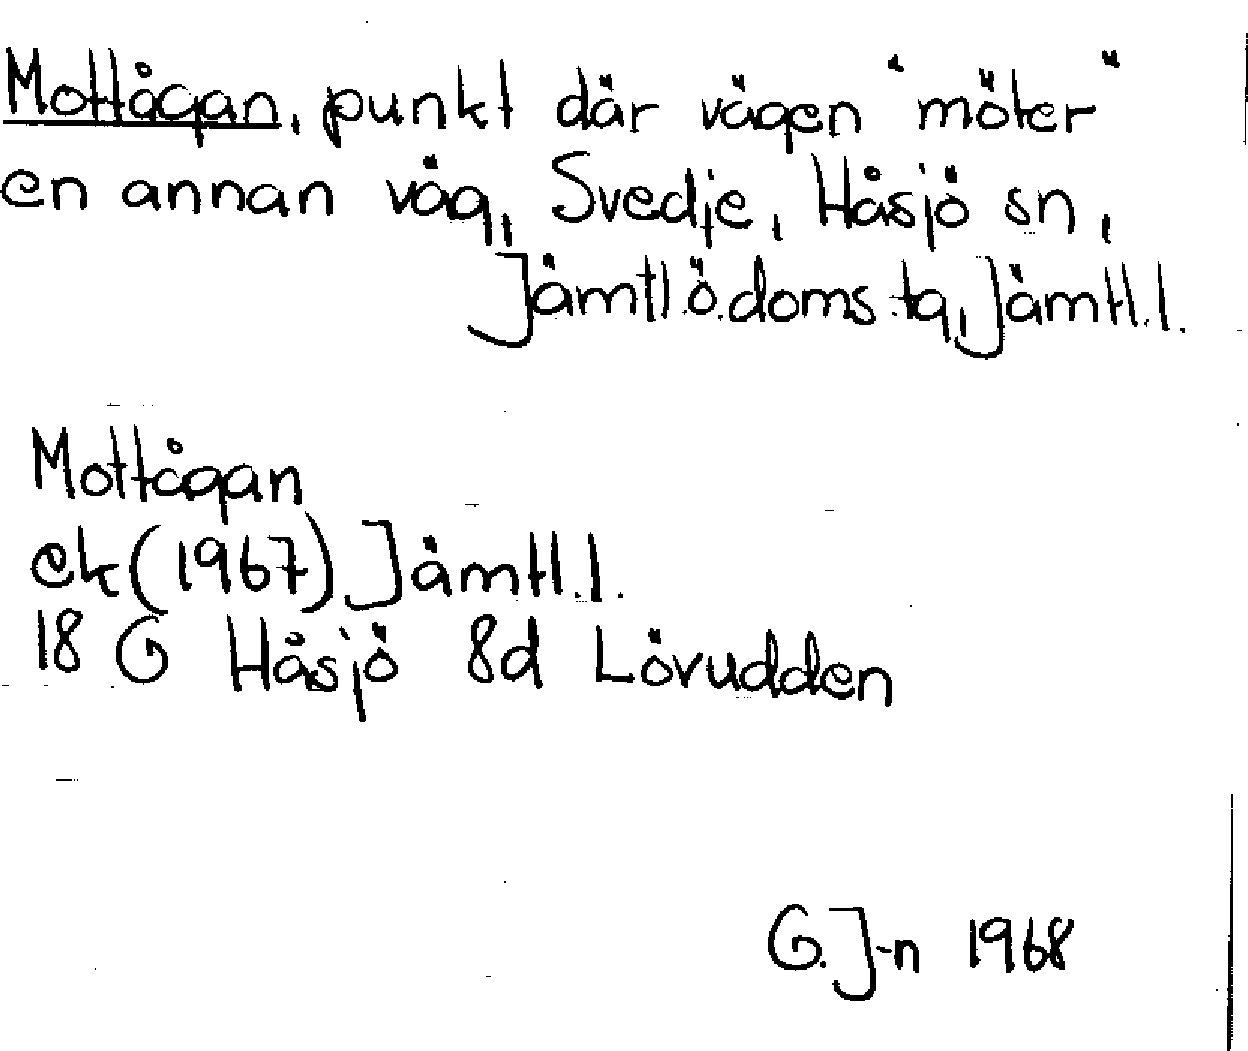 Mottågan, punkt där vägen "möter"
en annan väg, Svedje, Håsjö sn,
Jämtl.ö.doms.tg, Jämtl.l.
Mottågan
ek (1967) Jämtl.l.
18 G Håsjö 8d Lövudden
G. J-n 1968